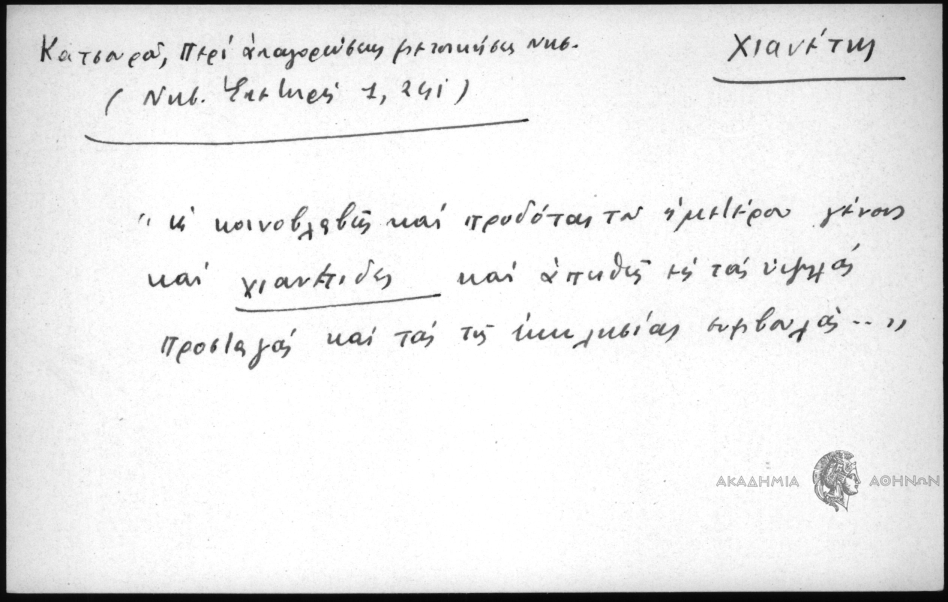 Κατσουροῦ, Περὶ ἀπαγορεύσεως μετοικήσεως Νκσ.
Χιανέτης
(Νκσ. Ἐπετηρίς 1, 241)
"ὡς κοινοβλαβεῖς καὶ προδότας τοῦ ἡμετέρου γένους
καὶ χιανέτιδες καὶ ἀπειθεῖς εἰς τὰς ὑψηλάς
προσταγάς καὶ τὰς τῆς ἐκκλησίας συμβουλάς..."
ΑΚΑΔΗΜΙΑ ΑΘΗΝΩΝ